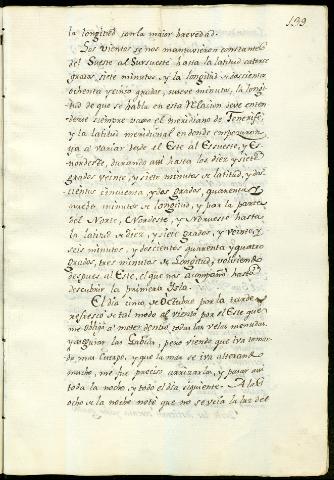 139
la longitud con la maior brevedad.
Los vientos se nos mantuvieron constantes
del Sueste al Sursueste hasta la latitud catorce
grados, siete minutos, y la longitud de doscientos
ochenta y cinco grados, nueve minutos, la longi
tud de que se habla en esta Relacion deve enten
derse siempre vajo el meridiano de Tenerife,
y la latitud meridional en donde empezaron
ya a variar desde el Este al Esueste, y Es
nordeste, durando asi hasta los diez y siete
grados veinte, y siete minutos de latitud, y dos
cientos cincuenta, y dos grados, quarenta y
nueve minutos de longitud, y por la parte
del Norte, Nordeste, y Norueste hasta
la latitud de diez, y siete grados, y veinte, y
seis minutos, y doscientos quarenta y quatro
grados, tres minutos de Longitud, volviendo
despues al Este, el que nos acompañó hasta
descubrir la primera Isla.
El dia cinco de Octubre por la tarde
refrescó de tal modo el viento por el Este que
me obligó a meter dentro todas las velas menudas,
y asegurar las Gabias, pero viendo que iva toman
do mas Cuerpo, y que la mar se iva alterando
mucho, me fue preciso arrizarlas, y pasar asi
toda la noche, y todo el dia siguiente. A las
ocho de la noche noté que no se veía la luz del